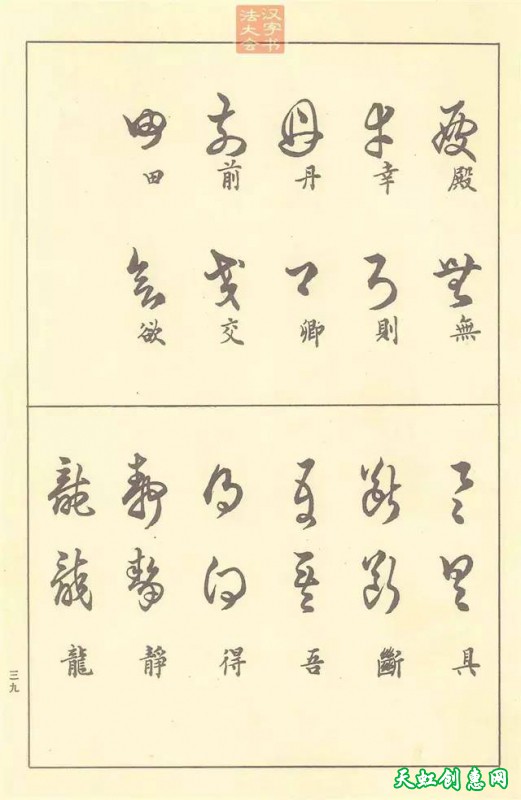 汉字书
法大会
殿 幸 丹 前 田
無 則 卿 交 欲
具 斷 吾 得 靜 龍
三九
天虹创惠网